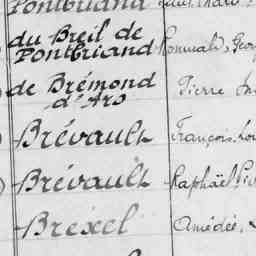 Pontbriand
du Breil de
Pontbriand Romuald, Geor
de Brémond
d'Ars Pierre
Brévault François, Lou
Brévault Raphaël
Brexel Amédée,